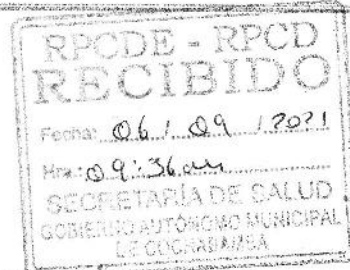 RPCDE - RPCD
RECIBIDO
Fecha: 06 / 09 / 2021
Hrs.: 09:36 am
SECRETARÍA DE SALUD
GOBIERNO AUTÓNOMO MUNICIPAL
DE COCHABAMBA